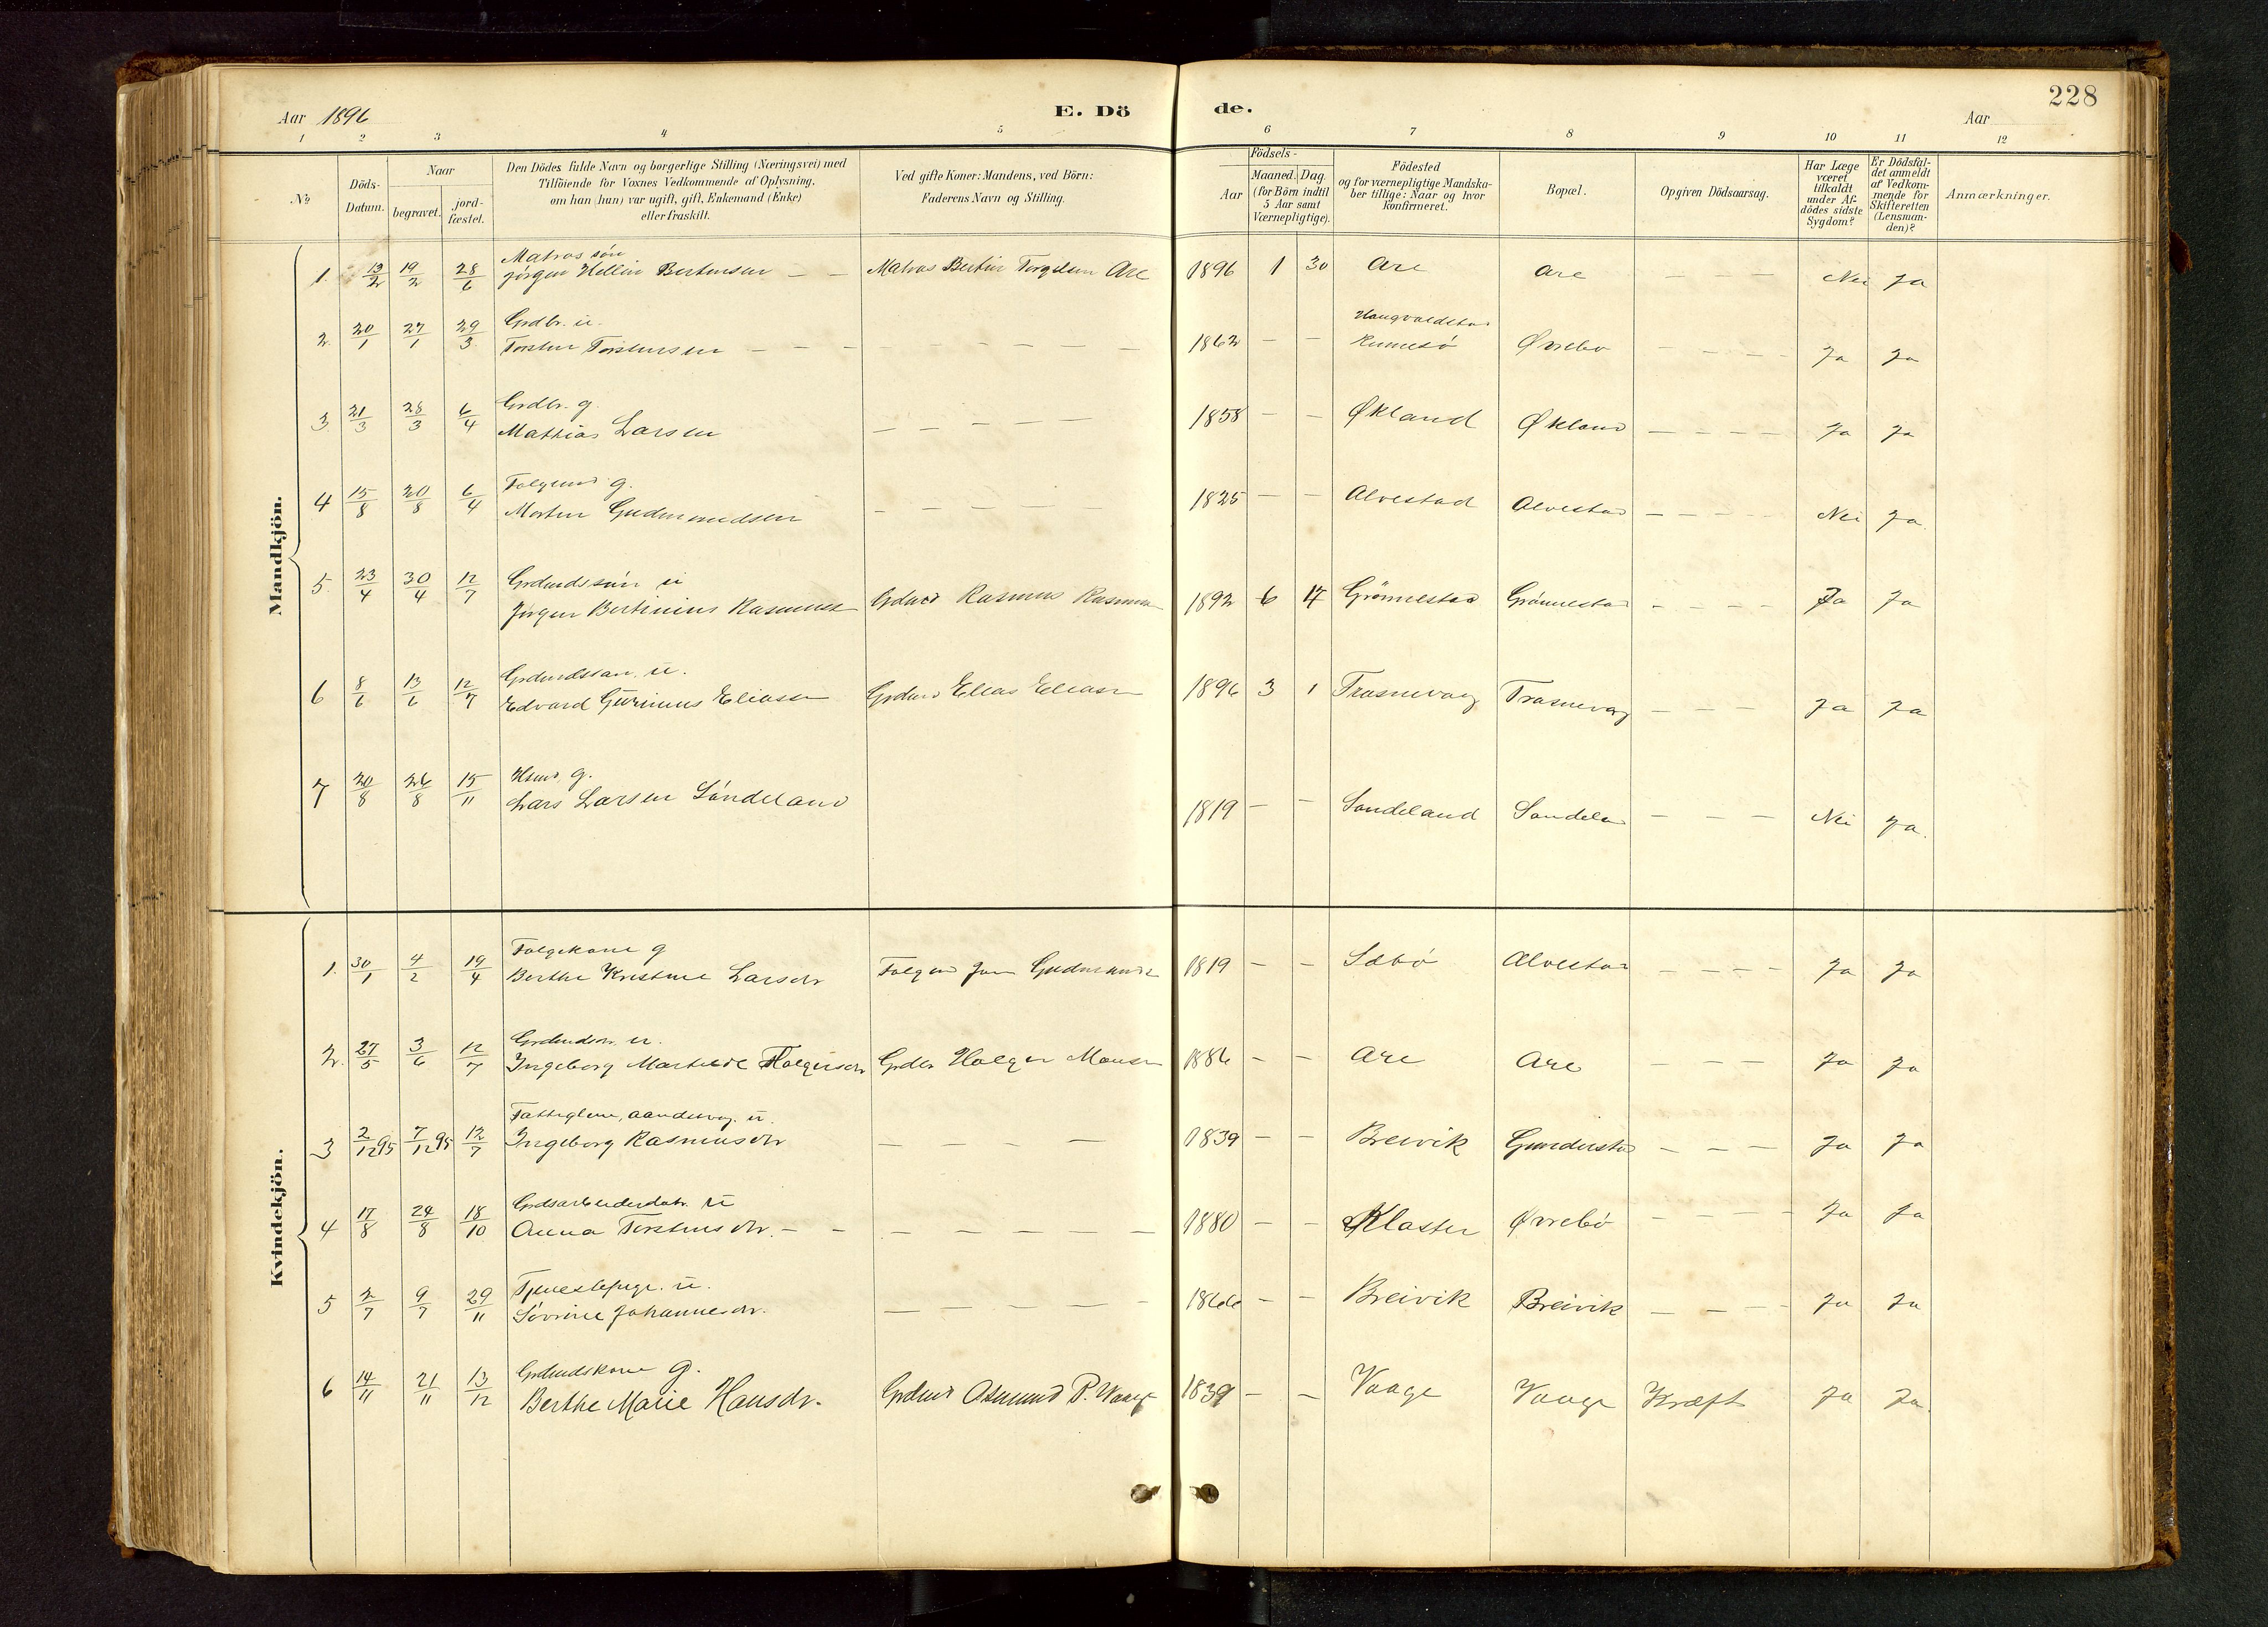 228
Aar 1896
E. Dö
de.
Aar
1 2 3 4 5 6 7 8 9 10 11 12
№
Döds-
Datum.
Naar
begravet.
jord-
fæstet.
Den Dödes fulde Navn og borgerlige Stilling (Næringsvei) med
Tilföiende for Voxnes Vedkommende af Oplysning,
om han (hun) var ugift, gift, Enkemand (Enke)
eller fraskilt.
Ved gifte Koner: Mandens, ved Börn:
Faderens Navn og Stilling.
Födsels-
Aar
Maaned. Dag.
(for Börn indtil
5 Aar samt
Værnepligtige).
Födested
og for værnepligtige Mandska-
ber tillige: Naar og hvor
konfirmeret.
Bopæl.
Opgiven Dödsaarsag.
Har Læge
været
tilkaldt
under Af-
dödes sidste
Sygdom?
Er Dödsfal-
det anmeldt
af Vedkom-
mende for
Skifteretten
(Lensman-
den)?
Anmærkninger.
Mandkjön.
Matros søn
1. 13/2 19/2 28/6 Jørgen Bertinsen – – Matros Bertin Torgelsen Are 1896 1 30 Are Are – – – Nei Ja
Grdbr. u.
2. 20/1 27/1 29/3 Torsten Torstensen – – – 1862 – – Øvrebø – – – – Ja Ja
Grdbr. g.
3. 21/3 28/3 6/4 Mathias Larsen – – – – – 1858 – – Økland Økland – – – – Ja Ja
g.
4 15/8 20/8 6/4 Morten Gudmundsen – – – – 1825 – – Alvestad Alvestad – – – – Nei Ja
Grdmdssøn u
5. 23/4 30/4 12/7 Jørgen Bertinius Rasmussen Grdmd Rasmus Rasmussen 1892 6 17 Grønnestad Grønnestad – – – – Ja Ja
Grdmdssøn. u.
6 8/6 13/6 12/7 Edvard Eliassen Grdmd Elias Eliassen 1896 3 1 Trosnevag Trosnevag – – – Ja Ja
Hsmd. g.
7 20/8 26/8 15/11 Lars Larsen Søndeland 1819 – – Sandeland Sandeland – – – Nei Ja.
Kvindekjön.
Folgekone g
1. 30/1 4/2 19/4 Berthe Kristine Larsdr 1819 – – Sæbø Alvestad – – – – Ja Ja
Grdmdsdr. u.
2. 27/5 3/6 12/7 Ingeborg Holgersdr Holger Monsen 1886 – – Are Are – – – Ja Ja
u.
3 2/12 95 7/12 95 12/7 Ingeborg Rasmusdr – – – – 1839 – – Breivik Gunderstad – – – Ja Ja
Grdsarbeiderdatr. u
4 17/8 24/8 18/10 Anna Torstensdr. – – – – – – – 1880 – – Kloster Øvrebø – – – – Ja Ja
Tjenestepige. u.
5 2/7 9/7 29/11 Søvrine Johannesdr. – – – – – 1866 – – Breivik Breivik – – – – Ja Ja
Grdmdskone g.
6 14/11 21/11 13/12 Berthe Marie Hansdr. Grdmd Asmund P. Waage 1839 – – Vaage Vaage Kræft Ja Ja.